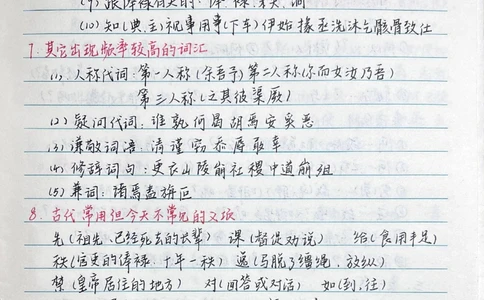 (10)知(典、主)视事用事(下车)伊始掾丞洗沐乞骸骨致仕
7.其它出现频率较高的词汇
(1)人称代词:第一人称(余吾予)第二人称(你而女汝乃吾)
第三人称(之其彼渠厥)
(2)疑问代词:谁孰何曷胡焉安奚恶
(3)谦敬词语:请谨窃忝辱敢幸
(4)修辞词句:更衣山陵崩社稷中道崩组
(5)兼词:诸焉盍旃叵
8.古代常用但今天不常见的义项
先(祖先、已经死去的长辈) 课(督促劝说) 给(食用丰足)
秩(官吏的俸禄:十年一秩) 逸(马脱了缰绳,放纵)
禁(皇帝居住的地方) 对(回答或对话) 如(到,往)